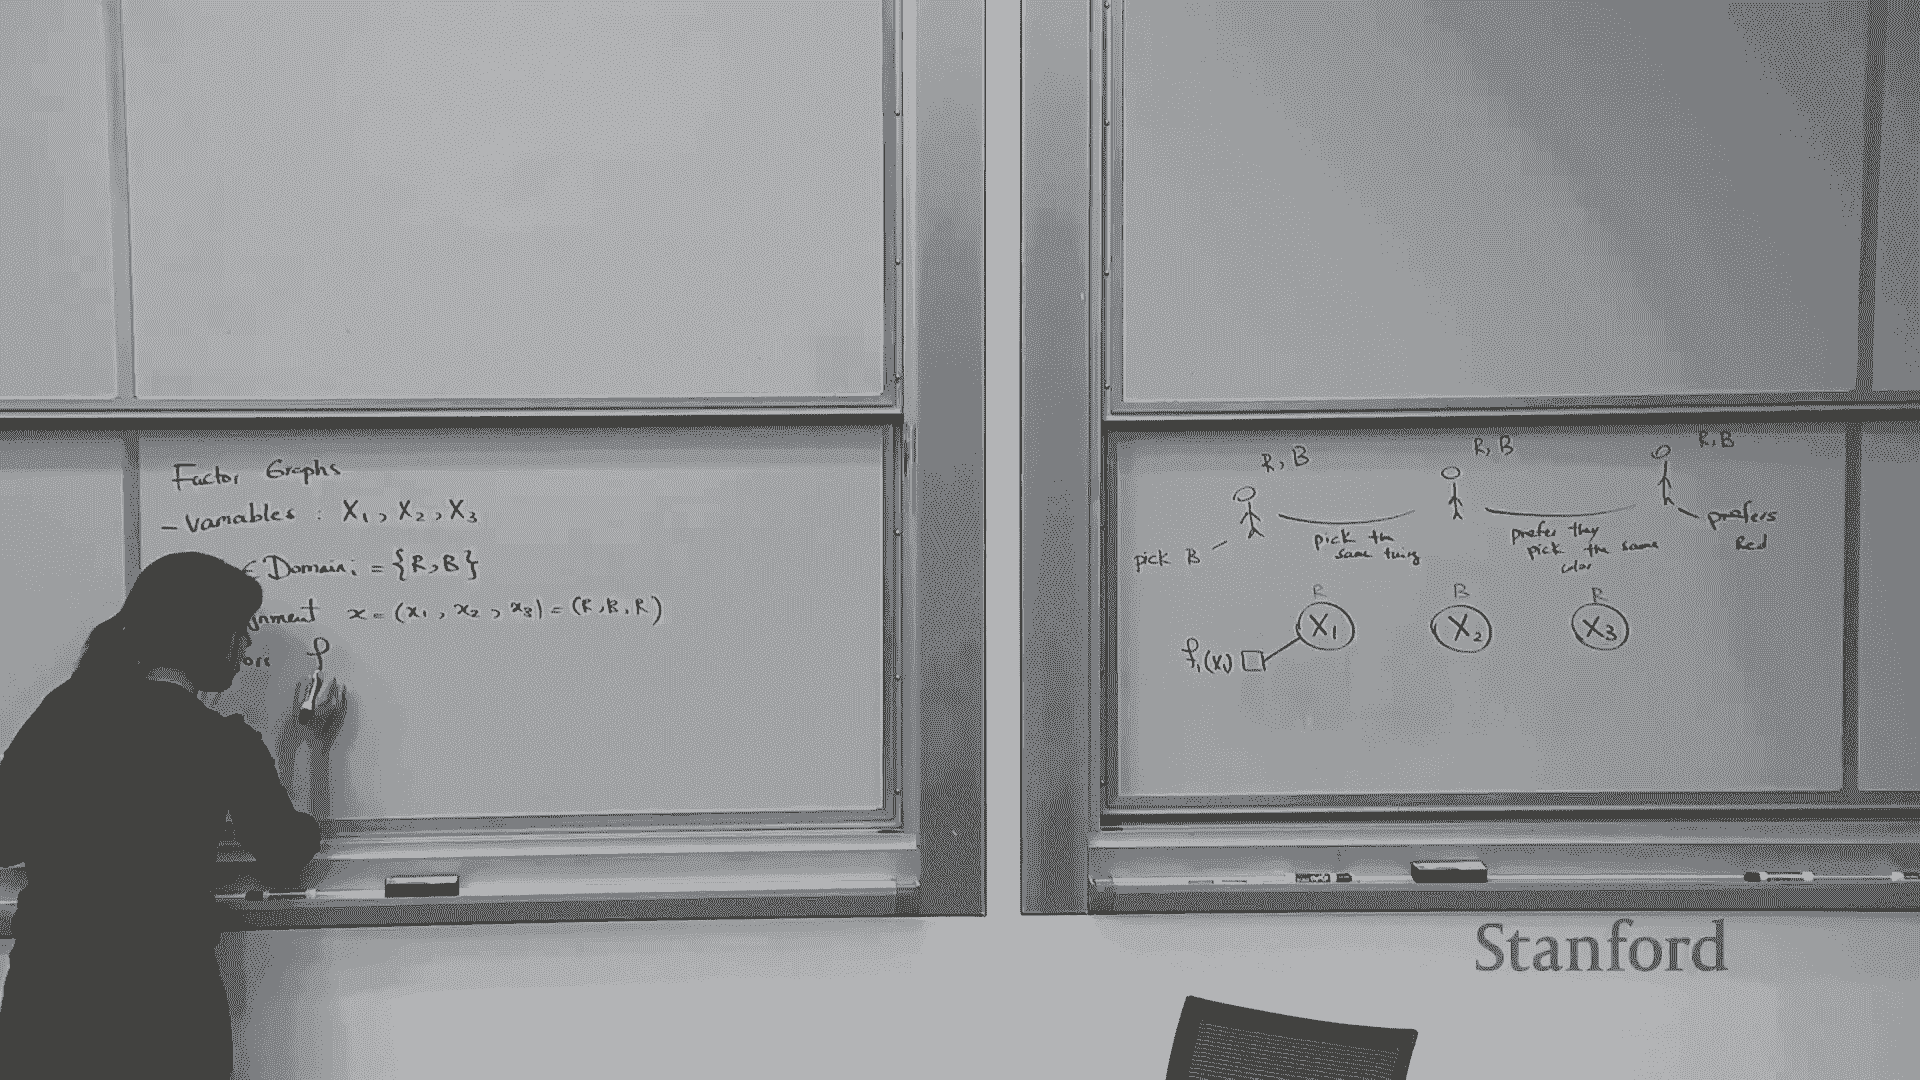 Factor Graphs
- Variables : X₁, X₂, X₃
∈ Domainᵢ = {R,B}
gnment x = (x₁, x₂, x₃) = (R,B,R)
ors f
R, B
R, B
R, B
pick B
pick the
same thing
prefer they
pick the same
color
prefers
Red
R
B
R
X₁
X₂
X₃
f₁(x₁)
Stanford